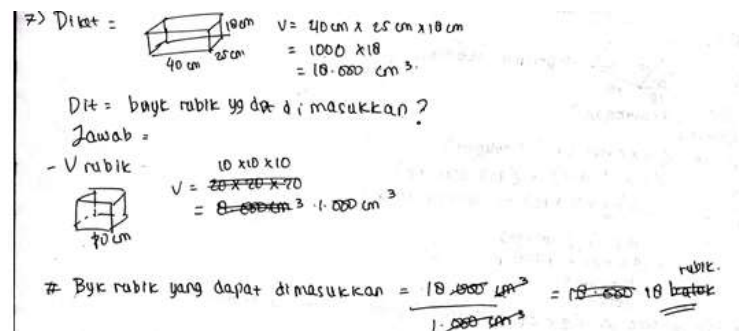 7) Diket = 18cm V = 40 cm x 25 cm x 18 cm
40 cm 25 cm = 1000 x 18
= 18.000 cm³.
Dit = bnyk rubik yg dpt dimasukkan?
Jawab =
- V rubik 10 x 10 x 10
V = 20 x 20 x 20
= 8.000 cm³ 1.000 cm³
10 cm
# Byk rubik yang dapat dimasukkan = 18.000 cm³ = 18.000 18 balok rubik.
1.000 cm³